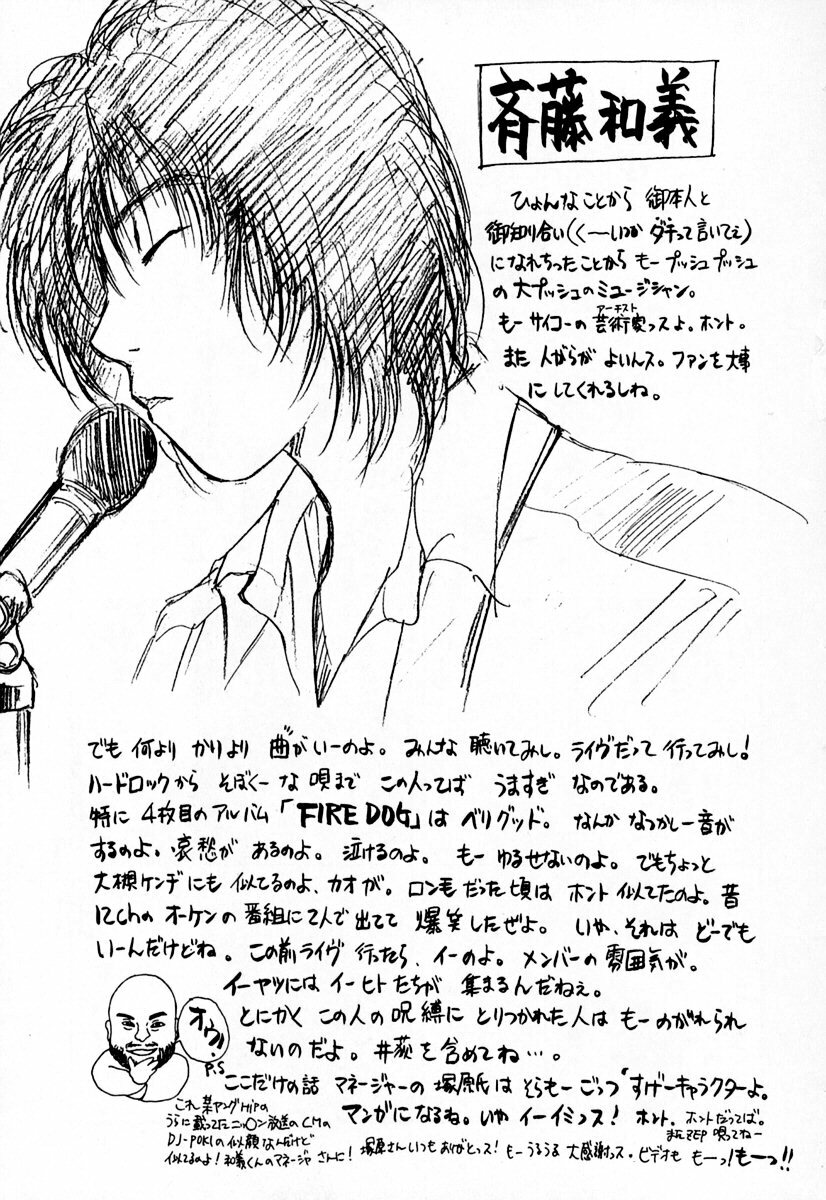 斉藤和義
ひょんなことから 御本人と
御知り合い(く〜いつか ダチって言いてぇ)
になれちったことから もープッシュプッシュ
の大プッシュのミュージシャン。
もー サイコーの 芸術家ッスよ。ホント。
アーチスト
また 人がらが よいんス。ファンを大事
にしてくれるしね。
でも 何より かにより 曲がいーのよ。みんな 聴いてみし。ライヴだって 行ってみし!
ハードロックから そぼくーな唄まで この人ってば うますぎ なのである。
特に 4枚目のアルバム「FIRE DOG」は ベリグッド。なんか なつかしー音が
するのよ。哀愁が あるのよ。泣けるのよ。もー ゆるせないのよ。でもちょっと
大槻ケンヂにも 似てるのよ、カオが。ロン毛だった頃は ホント 似てたのよ。昔
12chの オーケンの 番組に2人で 出てて 爆笑したぜよ。いや、それは どーでも
いーんだけどね。この前ライヴ 行ったら、イーのよ。メンバーの 雰囲気が。
イーヤツには イーヒトたちが 集まるんだねぇ。
とにかく この人の呪縛に とりつかれた人は もーのがれられ
ないのだよ。井荻を含めてね…。
オウッ!
P.S
ここだけの話 マネージャーの 塚原氏は そらもー ごっつ すげーキャラクターよ。
マンガになるね。いや イーイミっス! ホント。ホントだってば。
これ 某ヤングHipの
うらに載ってたニッ○ン放送のCMの
DJ-POKIの似顔なんだけど
似てるのよ!和義くんのマネージャさんに!
塚原さんいつもありがとっス! もーうるうる 大感謝っス・ビデオも もーっ!もーっ!!